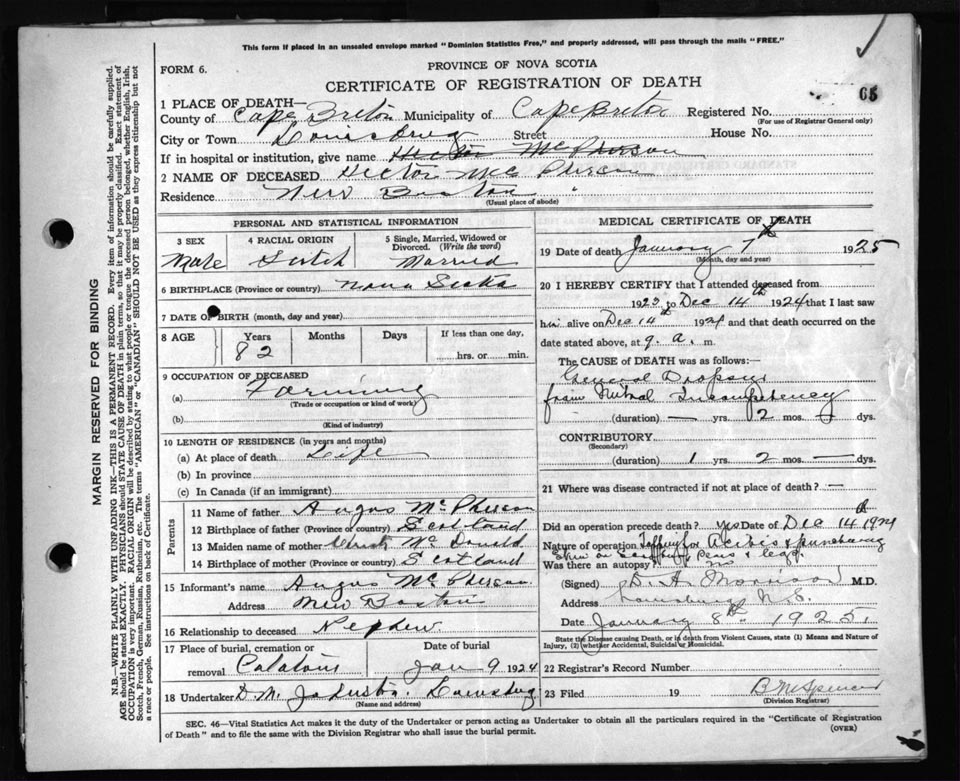 This form if placed in an unsealed envelope marked "Dominion Statistics Free," and properly addressed, will pass through the mails "FREE."
PROVINCE OF NOVA SCOTIA
FORM 6.
CERTIFICATE OF REGISTRATION OF DEATH
65
1 PLACE OF DEATH—
County of Cape Breton Municipality of Cape Breton Registered No.
(For use of Registrar General only)
City or Town Louisburg Street House No.
If in hospital or institution, give name Hector McPherson
2 NAME OF DECEASED Hector McPherson
Residence New Boston "
(Usual place of abode)
PERSONAL AND STATISTICAL INFORMATION
3 SEX 4 RACIAL ORIGIN 5 Single, Married, Widowed or Divorced. (Write the word)
Male Scotch Married
6 BIRTHPLACE (Province or country) Nova Scotia
7 DATE OF BIRTH (month, day and year)
8 AGE Years Months Days If less than one day,
82 hrs. or min.
9 OCCUPATION OF DECEASED
(a) Farming
(Trade or occupation or kind of work)
(b)
(Kind of industry)
10 LENGTH OF RESIDENCE (in years and months)
(a) At place of death Life
(b) In province
(c) In Canada (if an immigrant)
Parents
11 Name of father Angus McPherson
12 Birthplace of father (Province or country) Scotland
13 Maiden name of mother McDonald
14 Birthplace of mother (Province or country) Scotland
15 Informant's name Angus McPherson
Address New Boston
16 Relationship to deceased Nephew
17 Place of burial, cremation or removal Date of burial
Catalone Jan 9 1924
18 Undertaker D. M. Louisburg
(Name and address)
MEDICAL CERTIFICATE OF DEATH
19 Date of death January 7th 1925
(Month, day and year)
20 I HEREBY CERTIFY that I attended deceased from
1923 to Dec 14th 1924 that I last saw
him alive on Dec 14th 1924 and that death occurred on
date stated above, at 9. a. m.
The CAUSE of DEATH was as follows:
General Dropsy
from Mitral Incompetency
(duration) — yrs. 2 mos. dys.
CONTRIBUTORY
(Secondary)
(duration) 1 yrs. 2 mos. — dys.
21 Where was disease contracted if not at place of death? —
Did an operation precede death? yes Date of Dec 14 1924
Nature of operation Tapping for puncturing
skin on Penis & legs
Was there an autopsy? no
(Signed) D. A. Morrison M.D.
Address Louisburg N.S.
Date January 8th 1925.
State the Disease causing Death, or in death from Violent Causes, state (1) Means and Nature of Injury, (2) whether Accidental, Suicidal or Homicidal.
22 Registrar's Record Number
23 Filed 19 B McSpencer
(Division Registrar)
SEC. 46—Vital Statistics Act makes it the duty of the Undertaker or person acting as Undertaker to obtain all the particulars required in the "Certificate of Registration
of Death" and to file the same with the Division Registrar who shall issue the burial permit.
(OVER)
MARGIN RESERVED FOR BINDING
N.B.—WRITE PLAINLY WITH UNFADING INK—THIS IS A PERMANENT RECORD. Every item of information should be carefully supplied.
AGE should be stated EXACTLY. PHYSICIANS should STATE CAUSE OF DEATH in plain terms, so that it may be properly classified. Exact statement of
OCCUPATION is very important. RACIAL ORIGIN will be described by stating to what people or tongue the deceased person belonged, whether English, Irish,
Scotch, French, German, Russian, Ruthenian, etc. The terms "AMERICAN" or "CANADIAN" SHOULD NOT BE USED as they express citizenship but not
a race or people. See instructions on back of Certificate.